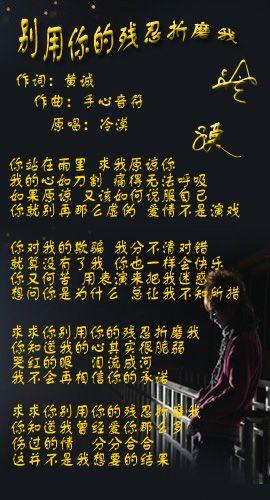 别用你的残忍折磨我
作词：黄诚
作曲：手心音符
原唱：冷漠
冷漠
你站在雨里 求我原谅你
我的心如刀割 痛得无法呼吸
如果原谅 又该如何说服自己
你就别再那么虚伪 爱情不是演戏
你对我的欺骗 我分不清对错
就算没有了我 你也一样会快乐
你又何苦 用表演来把我迷惑
想问你是为什么 总让我不知所措
求求你别用你的残忍折磨我
你知道我的心其实很脆弱
哭红的眼 泪流成河
我不会再相信你的承诺
求求你别用你的残忍折磨我
你知道我曾经爱你那么多
伤过的情 分分合合
这并不是我想要的结果